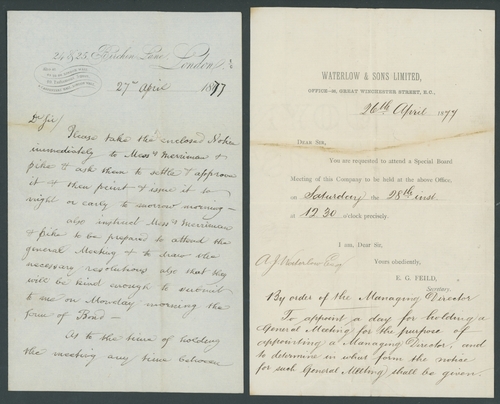 24 & 25, Birchin Lane, London,
27th April 1877
Dr Sir/
Please take the enclosed Notice
immediately to Mess Merriman &
Pike & ask them to settle & approve
it & then print & issue it to
night or early to morrow morning —
also instruct Mess Merriman
& Pike to be prepared to attend the
general Meeting & to draw the
necessary resolutions also that they
will be kind enough to submit
to me on Monday morning the
form of Bond —
As to the time of holding
the meeting any time between
WATERLOW & SONS LIMITED,
OFFICE—49, GREAT WINCHESTER STREET, E.C.,
26th April 1877
DEAR SIR,
You are requested to attend a Special Board
Meeting of this Company to be held at the above Office,
on Saturday the 28th inst.
at 12.30 o'clock precisely.
I am, Dear Sir,
Yours obediently,
A. J. Waterlow Esq
E. G. FEILD,
Secretary.
By order of the Managing Director
To appoint a day for holding a
General Meeting for the purpose of
appointing a Managing Director, and
to determine in what form the notice
for such General Meeting shall be given.